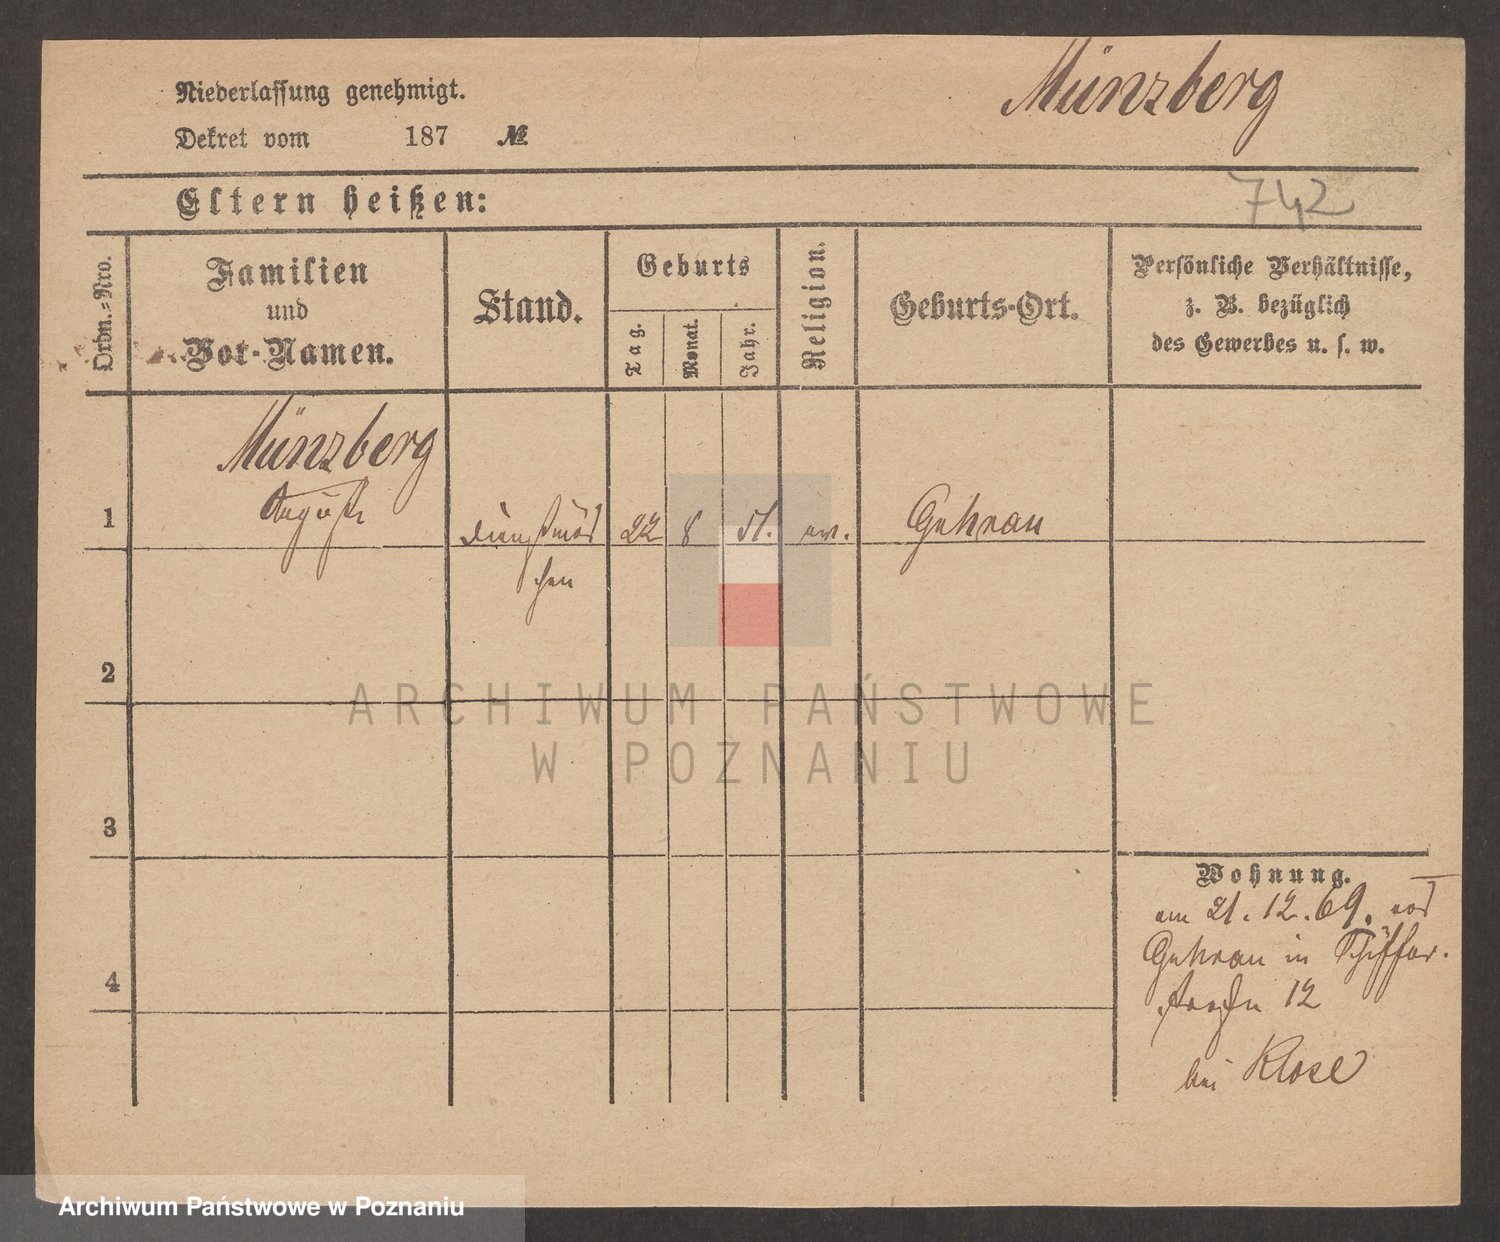 Münzberg
Niederlassung genehmigt.
Dekret vom 187 №
742
Eltern heißen:
Ordn.-Nro.
Familien
und
Vor-Namen.
Stand.
Geburts
Tag.
Monat.
Jahr.
Religion.
Geburts-Ort.
Persönliche Verhältnisse,
z. B. bezüglich
des Gewerbes u. s. w.
Münzberg
1 August Dienstmäd 22 8 51. ev. Guhrau
chen
2
3
4
Wohnung.
am 21.12.69. von
Guhrau in Schiffer-
straße 12
bei Klose
ARCHIWUM PAŃSTWOWE
W POZNANIU
Archiwum Państwowe w Poznaniu